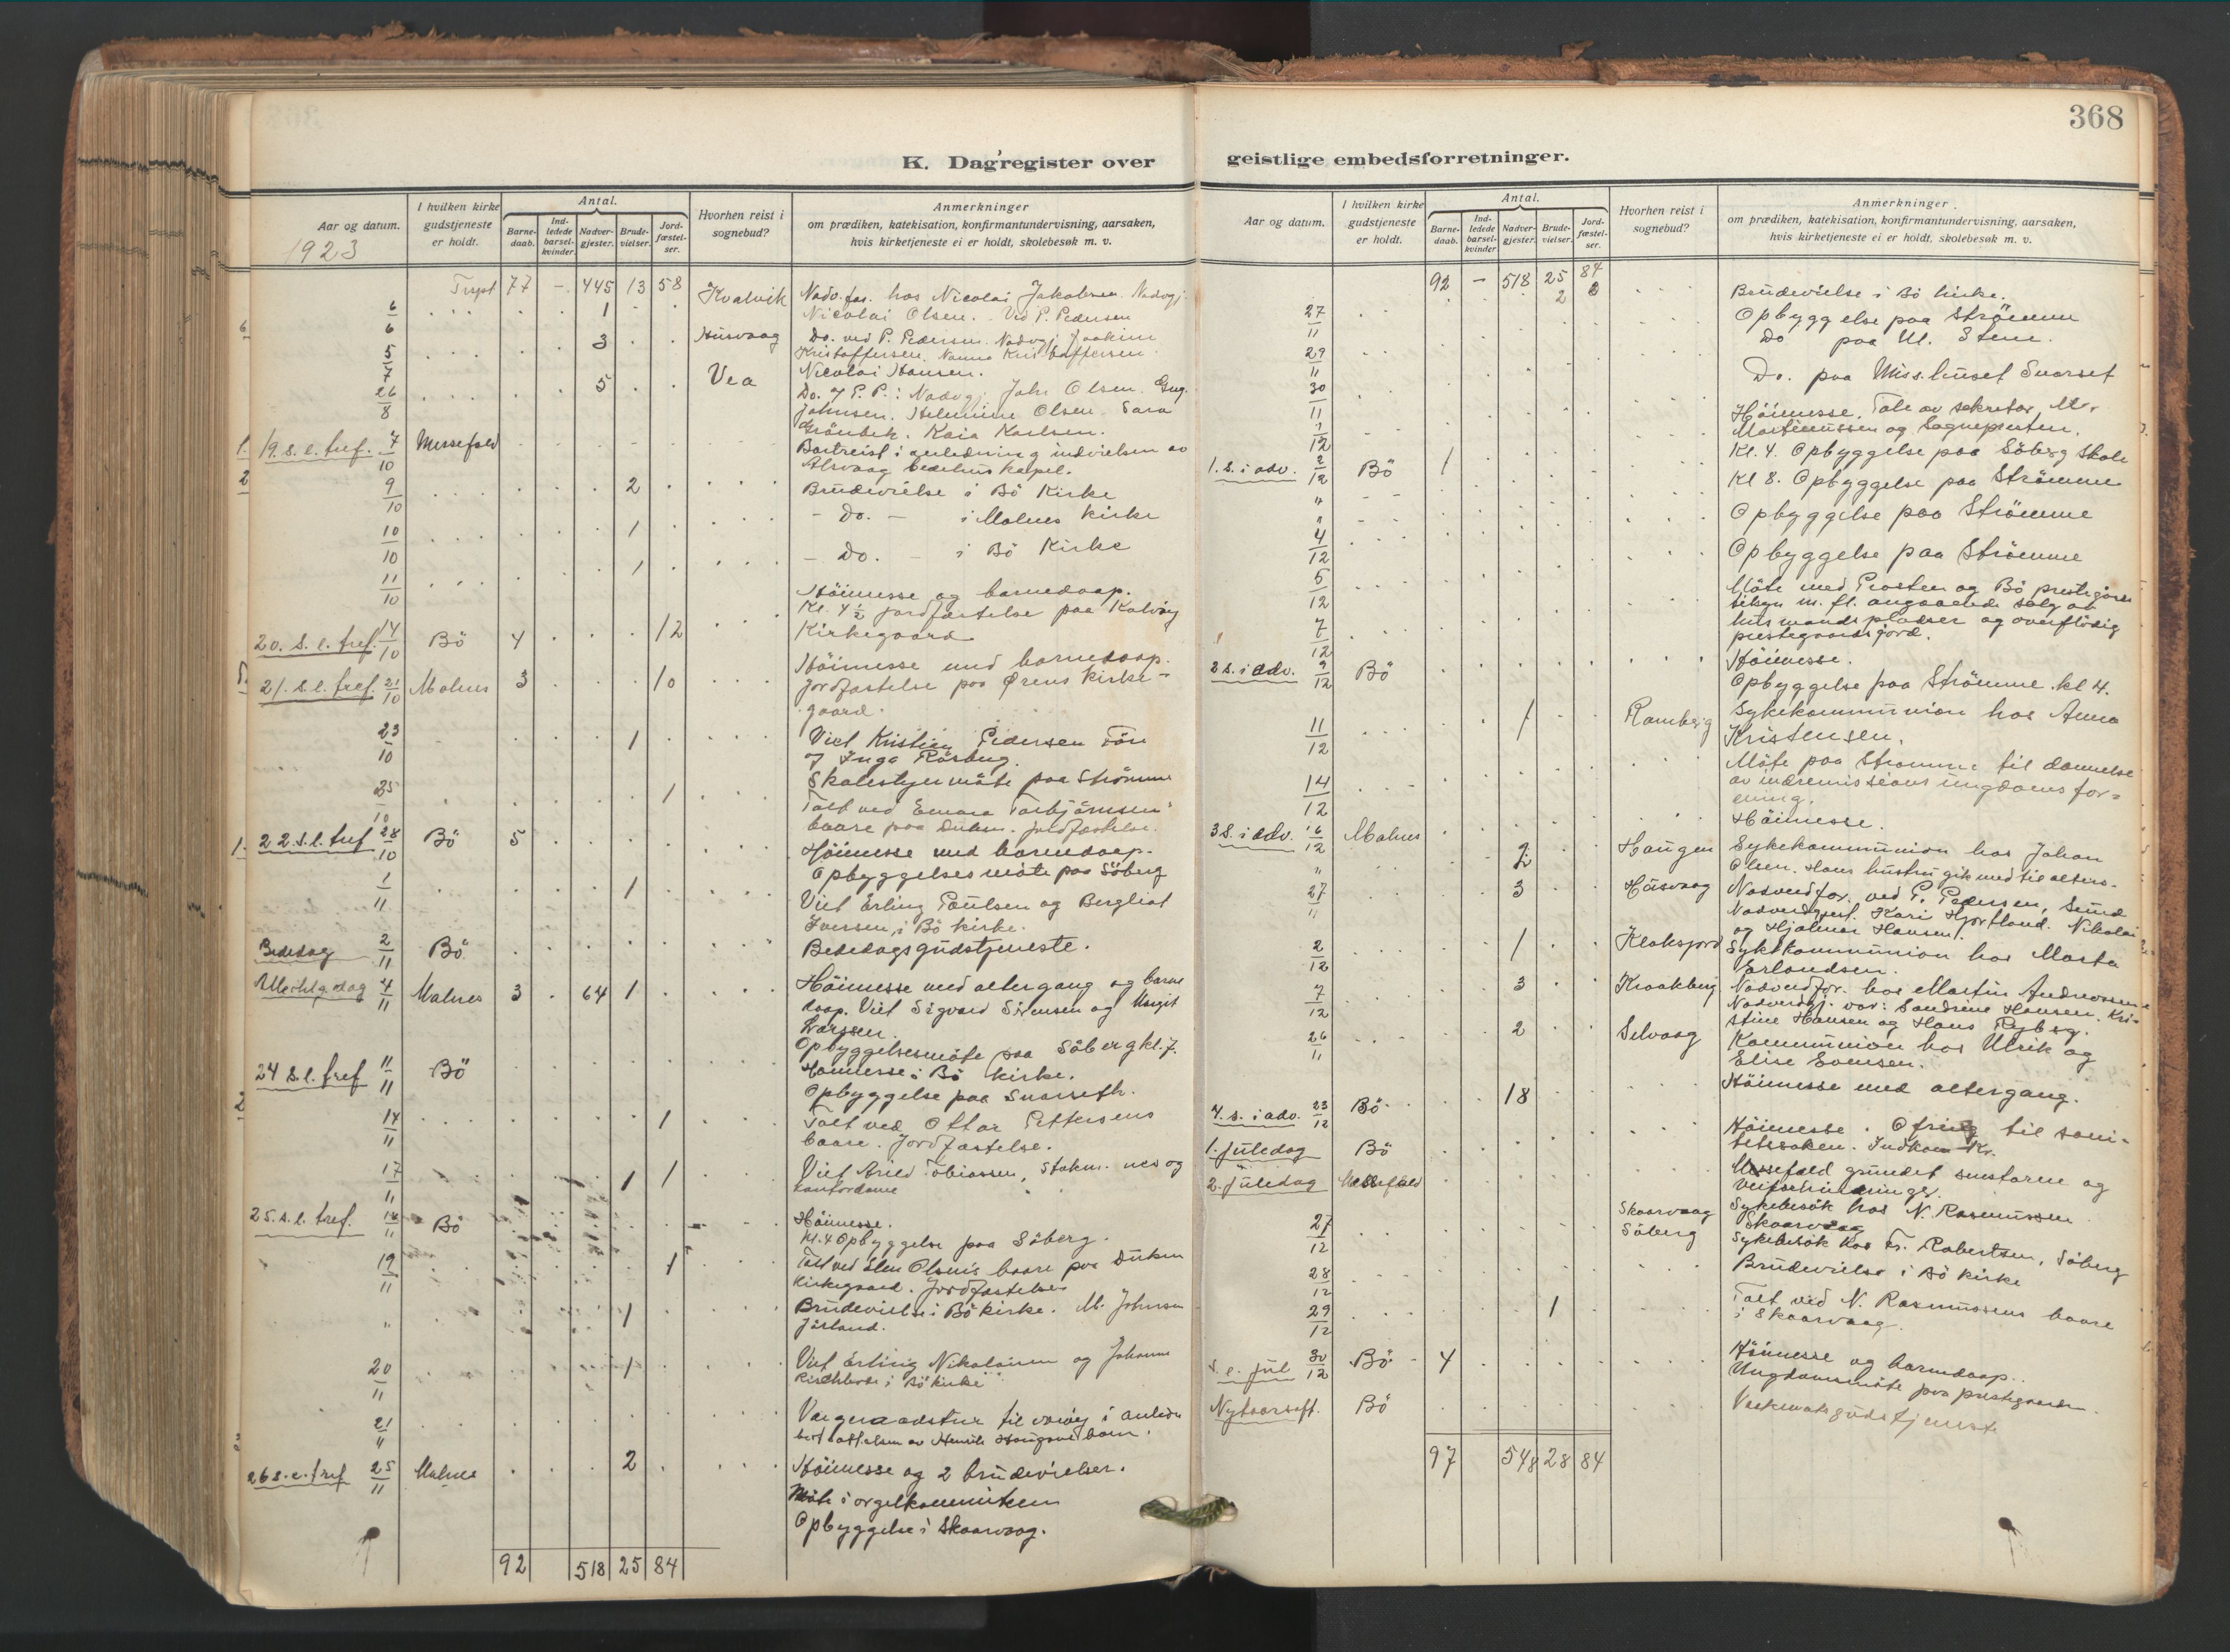 368
K. Dagregister over geistlige embedsforretninger.
Aar og datum.
1923
I hvilken kirke gudstjeneste er holdt.
Antal.
Barne-daab.
Ind-ledede barsel-kvinder.
Nadver-gjester.
Brude-vielser.
Jord-fæstel-ser.
Hvorhen reist i sognebud?
Anmerkninger
om prædiken, katekisation, konfirmantundervisning, aarsaken,
hvis kirketjeneste ei er holdt, skolebesøk m. v.
77 - 445 13 58
6/6 1 Kvalvik Nadv.for. hos Nicolai Jakobsen. Nadvgj.
Nicolai Olsen. Ved P. Pedersen
5/7 3 Husvaag Do. ved P. Pedersen. Nadvgj. Joakim
Kristoffersen, Nanna Kristoffersen
Nicolai Hansen.
26/8 5 Vea Do. P. P.: Nadvgj. Joh. Olsen.
Johnsen. Helmine Olsen. Sara
Grönbek. Kaia Karlsen.
19. s. e. tref. 7/10 Messefald Bortreist i anledning indvielsen av
Alsvaag bedehuskapel.
9/10 2 Brudevielse i Bö Kirke
10/10 1 - Do. - i Malnes Kirke
11/10 1 - Do. - i Bö Kirke
20. s. e. tref. 14/10 Bö 4 12 Höimesse og barnedaap.
Kl. 4½ jordfæstelse paa Kalvöy
Kirkegaard
21. s. e. tref. 21/10 Malnes 3 10 Höimesse med barnedaap.
Jordfæstelse paa Örens Kirke-
gaard.
23/10 1 Viet Kristian Pedersen
og Inga Rösberg.
25/10 1 Skolestyremöte paa Strömme
Talt ved Torbjörnsens
baare paa Duken. Jordfæstelse.
22. s. e. tref 28/10 Bö 5 Höimesse med barnedaap.
Opbyggelsesmöte paa Söberg
1/11 1 Viet Erling Poulsen og Bergliot
Iversen, i Bö kirke.
Bededag 2/11 Bö Bededagsgudstjeneste.
4/11 Malnes 3 64 1 Höimesse med altergang og barne
daap. Viet Sigvard Sörensen og Margit
Opbyggelsesmöte paa Söberg kl. 7.
24 s. e. tref 11/11 Bö Höimesse i Bö kirke.
Opbyggelse paa Svarseth.
14/11 1 Talt ved Ottar Pettersens
baare. Jordfæstelse.
17/11 1 1 Viet Arild Tobiassen,
25. s. e. tref. 18/11 Bö Höimesse.
Kl. 4 Opbyggelse paa Söberg.
19/11 1 Talt ved Elen Olsens baare paa Duken
Kirkegaard. Jordfæstelse
" 1 Brudevielse i Bö kirke. M. Johnsen
20/11 1 Viet Erling Nikolaisen og Johanne
i Bö kirke
21/11 Vergeraadstur til i anledn
bortsettelsen av Henrik barn.
26 s. e. tref 25/11 Malnes 2 Höimesse og 2 brudevielser.
Möte i orgelkomiteen
Opbyggelse i Skaarvaag.
92 518 25 84
Aar og datum.
I hvilken kirke gudstjeneste er holdt.
Antal.
Barne-daab.
Ind-ledede barsel-kvinder
Nadver-gjester.
Brude-vielser.
Jord-fæstel-ser.
Hvorhen reist i sognebud?
Anmerkninger
om prædiken, katekisation, konfirmantundervisning, aarsaken,
hvis kirketjeneste ei er holdt, skolebesøk m. v.
92 - 518 25 84
27/11 2 Brudevielse i Bö kirke.
Opbyggelse paa Strömme
29/11 Do paa Steine.
30/11 Do. paa Miss.huset Svarset
1/12 Höimesse. Tale av sekretær
Martinussen og Sognepresten.
1. s. i adv. 2/12 Bö 1 Kl. 4. Opbyggelse paa Söberg Skole
" Kl 8. Opbyggelse paa Strömme
" Opbyggelse paa Strömme
4/12 Opbyggelse paa Strömme
5/12 Möte med Prosten og Bö prestegjæld
m. fl. angaaende salg av
husmandsplasser og overflödig
7/12 prestegaardsjord.
2 s. i adv. 9/12 Bö Höimesse.
Opbyggelse paa Strömme kl 4.
11/12 1 Ramberg Sykekommunion hos Anna
Kristensen.
14/12 Möte paa Strömme til dannelse
av indremissions ungdomsfor-
ening.
3 s. i adv. 16/12 Malnes Höimesse.
" 2 Haugen Sykekommunion hos Johan
Olsen. Hans hustru gik med til alters.
27/11 3 Husvaag Nadverdfor. ved P. Pedersen, Sund
Nadverdgjest. Kari Hjortland. Nikolai
og Hjalmar Hansen.
2/12 1 Klaksjord Sykekommunion hos Marta
Erlandsen.
7/12 3 Kraakberg Nadverdfor. hos Martin Andreassen
Nadverdgj. var: Sandrine Hansen. Kri-
stine Hansen og Hans Ryberg.
26/11 2 Selvaag Kommunion hos Ulrik og
Elise Evensen.
4. s. i adv. 23/12 Bö 18 Höimesse med altergang.
1. juledag Bö Höimesse. Ofring til sani-
tetssaken. Indkom Kr.
2. juledag Messefald Messefald grundet snestorm og
veiforhindringer.
27/12 Skaarvaag Sykebesök hos N. Rasmussen
Skaarvaag
Söberg Sykebesök hos Fr. Robertsen, Söberg
28/12 Brudevielse i Bö kirke
29/12 1 Talt ved N. Rasmussens baare
i Skaarvaag.
s. e. jul 30/12 Bö 4 Höimesse og barnedaap.
Ungdomsmöte paa prestegaarden.
Nytaarsaft. Bö
97 548 28 84